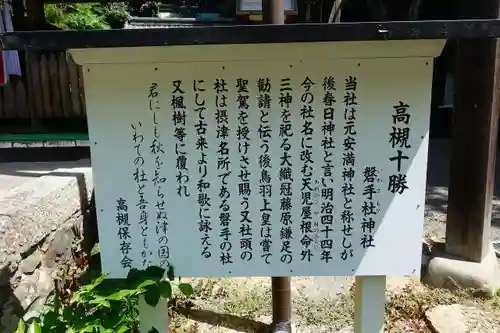 高槻十勝
磐手杜神社
当社は元安満神社と称せしが
後春日神社と言い明治四十四年
今の社名に改む天児屋根命外
三神を祀る大織冠藤原鎌足の
勧請と伝う後鳥羽上皇は嘗て
聖駕を授けさせ賜う又社頭の
杜は摂津名所である磐手の杜
にして古来より和歌に詠える
又楓樹等に覆われ
君にしも秋を知らせぬ津の国の
いわての杜と吾身ともがな
高槻保存会